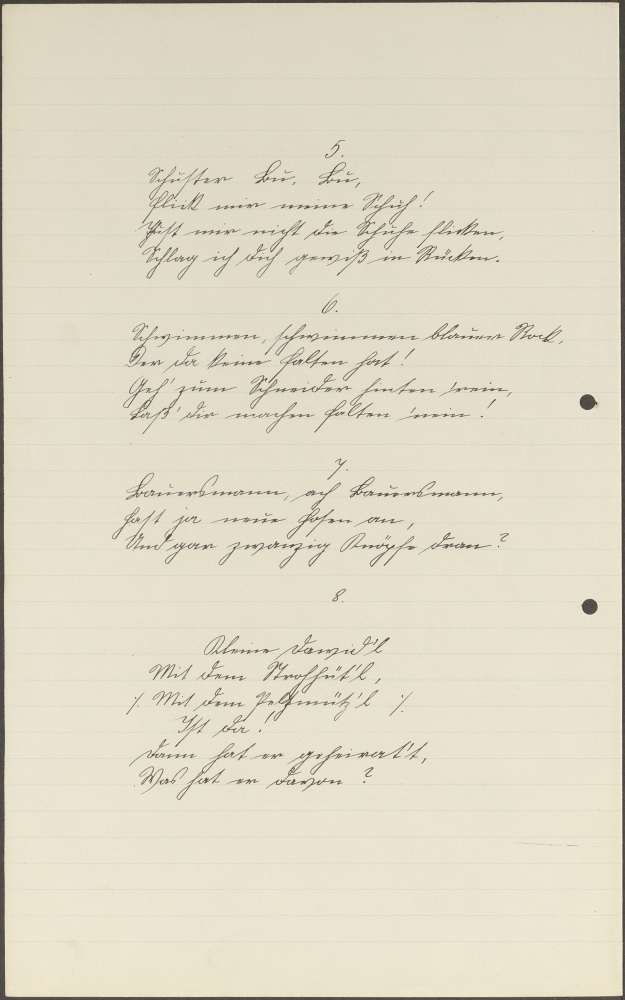 5.
Schuster Bu, Bu,
Flick mir meine Schuh!
Tust mir nicht die Schuhe flicken,
Schlag ich dich gewiß in Rücken.
6.
Schwimmen, schwimmen blauer Rock,
Der da keine Falten hat!
Geh' zum Schneider hinten 'rein,
Laß' dir machen Falten 'nein!
7.
Bauersmann, ach Bauersmann,
Hast ja neue Hosen an,
Und gar zwanzig Knöpfe dran?
8.
Kleine David'l
Mit dem Strohhüt'l,
:/: Mit dem Pelzmütz'l :/:
Ist da!
Dann hat er geheirat't,
Was hat er davon?